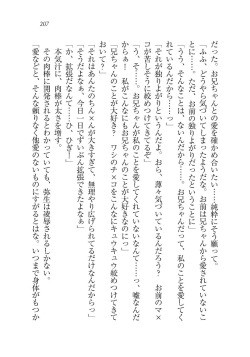 だった。お兄ちゃんとの愛を確かめ合いたい……純粋にそう願って。
「ふふ、どうやら気づいてしまったようだな、今、お前は兄ちゃんから愛されていないことに……。ただ、お前の独りよがりだったということに」
「うっ、そんなことは、ないんだから……っ。お兄ちゃんだって、私のことを愛してくれているんだから……っ」
「それが独りよがりというんだよ。おら、薄々気づいているんだろう？　お前のマ×コが苦しそうに絞めつけてきてるぞ」
「うっ、そ……。お兄ちゃんが私のことを愛してくれていないなんて……っ、嘘なんだからぁ！　私がこんなにもお兄ちゃんのことを愛しているのに……！」
「兄ちゃんのことが大好きなのにっ、ワシのチ×コをこんなにキュウキュウ絞めつけてきておいて？」
「それはあんたのちん×んが大きすぎて、無理やり広げられてるだけなんだからっ」
「そうだよなぁ、今日一日でずいぶん拡張できたよなぁ」
「か、拡張だなんて……っ、ひぎ！」
本気汁に、肉棒が太さを増す。
その肉棒に開発されるとわかっていても、弥生は凌辱されるしかない。
（愛などと、そんな頼りなく他愛のないものにすがるとはな。いつまで身体がもつか
207